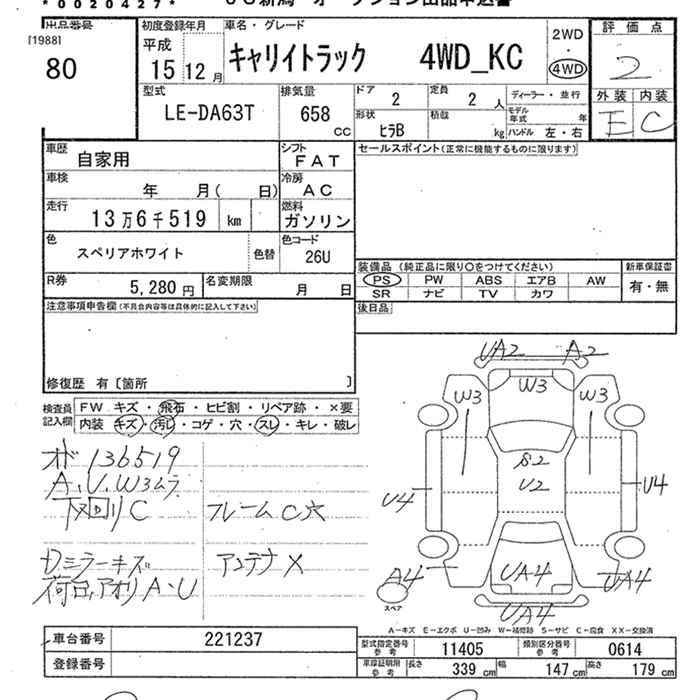 *0020427*
出品番号 初度登録年月 車名・グレード 評価点
[1988]
80
平成 15 12 月
キャリイトラック 4WD_KC
2WD
・
4WD
2
型式 排気量 ドア 2 定員 2 人 ディーラー・並行 外装 内装
LE-DA63T 658 CC
モデル年式 年
形状 ヒラB 積載 kg ハンドル 左・右
E C
車歴 自家用 シフト FAT
セールスポイント(正常に機能するものに限ります)
車検 年 月( 日) 冷房 AC
走行 13万6千519 km 燃料 ガソリン
色 スペリアホワイト 色替 色コード 26U
装備品 (純正品に限り○をつけてください) 新車保証書
PS PW ABS エアB AW 有・無
SR ナビ TV カワ
R券 5,280 円 名変期限 月 日
後日品
注意事項申告欄(不具合内容等は具体的に記入して下さい)
修復歴 有〔箇所 〕
検査員記入欄 FW キズ・飛石・ヒビ割・リペア跡・×要
内装 キズ・汚レ・コゲ・穴・スレ・キレ・破レ
オド 136519
A、U、W3ムラ
下メ回リC フレームC穴
Dミラーキズ アンテナX
荷台、アオリA・U
UA2 A2
W3 W3 W3
S2
U2
U4 U4
A4 UA4 UA4
スペア
UA4
A-キズ E-エクボ U-凹み W-補修跡 S-サビ C-腐食 XX-交換済
車台番号 221237
型式指定番号 参考 11405 類別区分番号 参考 0614
登録番号
車庫証明用 参考 長さ 339 cm 幅 147 cm 高さ 179 cm